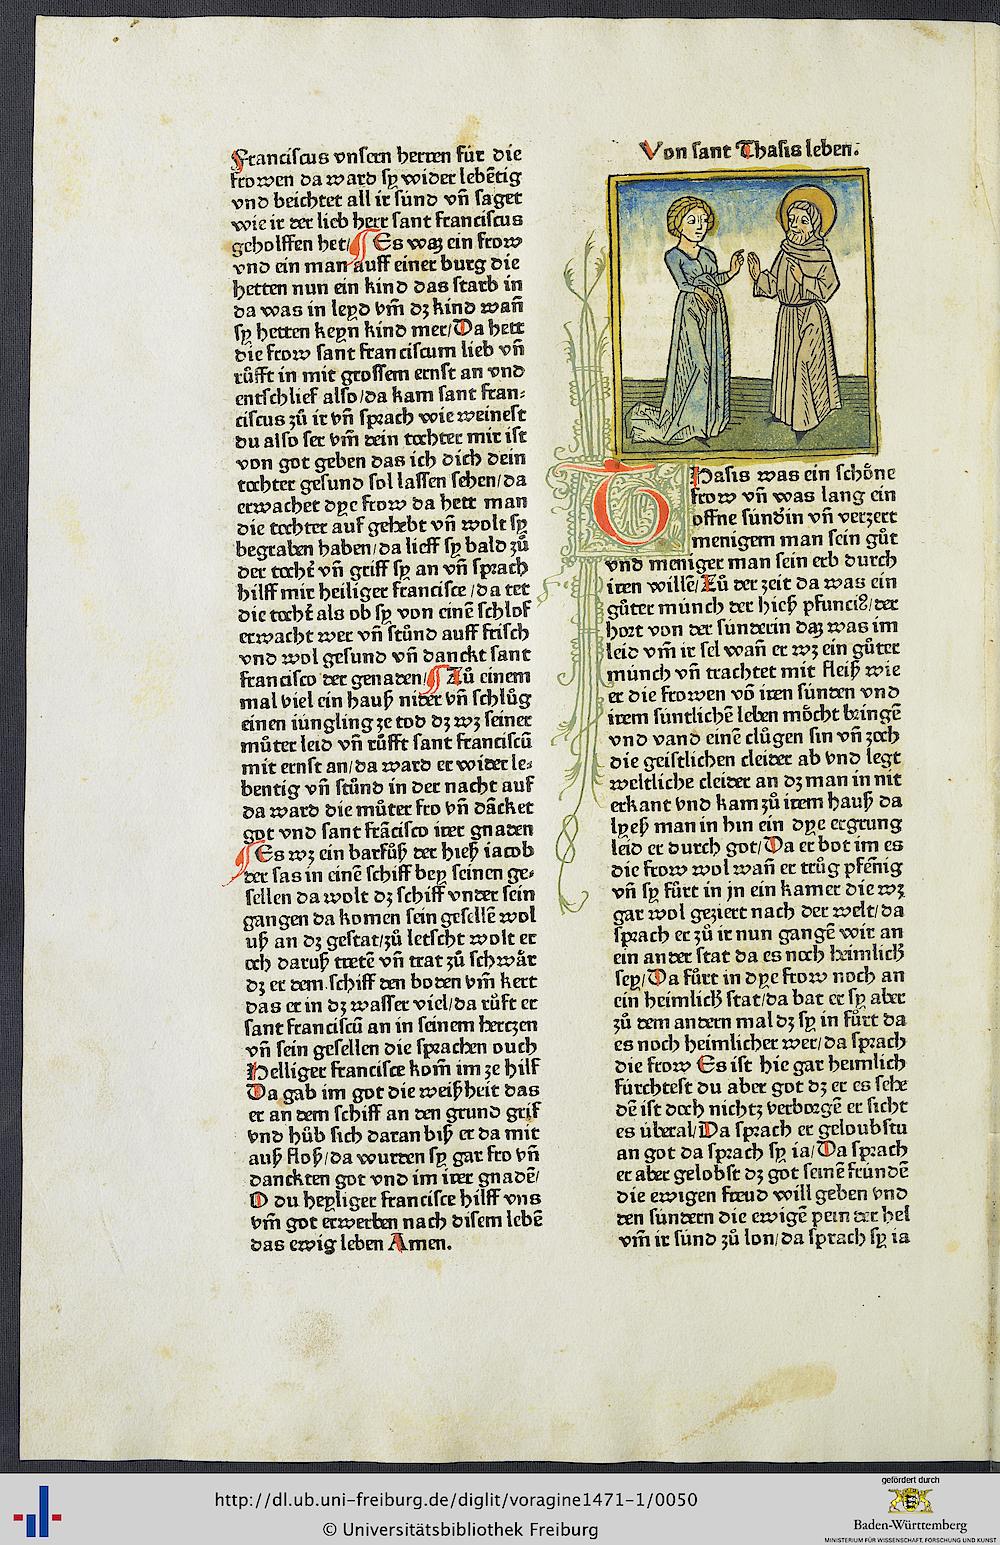 Franciscus vnſern herren für die
frowen da ward ſy wider lebẽtig
vnd beichtet all ir ſünd vñ ſaget
wie ir der lieb herr ſant franciſcus
geholffen het/ Es waʒ ein frow
vnd ein man auff einer burg die
hetten nun ein kind das ſtarb in
da was in leyd vm̃ dʒ kind wañ
ſy hetten keyñ kind mer/ Da hett
die frow ſant franciſcum lieb vñ
růfft in mit groſſem ernſt an vnd
entſchlief alſo/ da kam ſant fran⸗
ciſcus zů ir vñ ſprach wie weineſt
du alſo ſer vm̃ dein tochter mir iſt
von got geben das ich dich dein
tochter geſund ſol laſſen ſehen/ da
erwachet dye frow da hett man
die tochter auf gehebt vñ wolt ſy
begraben haben/ da lieff ſy bald zů
der tocht̃ vñ griff ſy an vñ ſprach
hilff mir heiliger franciſce /da tet
die tocht̃ als ob ſy von einẽ ſchlof
erwacht wer vñ ſtůnd auff friſch
vnd wol geſund vñ danckt ſant
franciſco der genaden/ Zů einem
mal viel ein hauß nider vñ ſchlůg
einen iüngling ze tod dʒ wʒ ſeiner
můter leid vñ růfft ſant franciſcũ
mit ernſt an/ da ward er wider le⸗
bentig vñ ſtůnd in der nacht auf
da ward die můter fro vñ dãcket
got vnd ſant frãciſco irer gnaden
Es wʒ ein barfůß der hieß iacob
der ſas in einẽ ſchiff bey ſeinen ge⸗
ſellen da wolt dʒ ſchiff vnder ſein
gangen da komen ſein geſellẽ wol
uß an dʒ geſtat/ zů letſcht wolt er
och daruß tretẽ vñ trat zů ſchwär
dʒ er dem ſchiff den boden vm̃ kert
das er in dʒ waſſer viel/ da růft er
ſant franciſcũ an in ſeinem herczen
vñ ſein geſellen die ſprachen ouch
Helliger franciſce kom̃ im ze hilf
Da gab im got die weißheit das
er an dem ſchiff an den grund grif
vnd hůb ſich daran biß er da mit
auß floß/ da wurden ſy gar fro vñ
danckten got vnd im irer gnadẽ/
O du heyliger franciſce hilff vns
vm̃ got erwerben nach diſem lebẽ
das ewig leben Amen.
Von ſant Thaſis leben.
THaſis was ein ſchöne
frow vñ was lang ein
offne ſünd̃in vñ verzert
menigem man ſein gůt
vnd meniger man ſein erb durch
iren willẽ/ Zů der zeit da was ein
gůter münch der hieß pfunciꝰ/ der
hort von der ſünderin daʒ was im
leid vm̃ ir ſel wañ er wʒ ein gůter
münch vñ trachtet mit fleiß wie
er die frowen võ iren ſünden vnd
irem ſüntlichẽ leben möcht bringẽ
vnd vand einẽ clůgen ſin vñ zoch
die geiſtlichen cleider ab vnd legt
weltliche cleider an dʒ man in nit
erkant vnd kam zů irem hauß da
lyeß man in hin ein dye ergrung
leid er durch got/ Da er bot im es
die frow wol wañ er trůg pfẽnig
vñ ſy fůrt in jn ein kamer die wʒ
gar wol geziert nach der welt/ da
ſprach er zů ir nun gangẽ wir an
ein ander ſtat da es noch heimlich̃
ſey/ Da fůrt in dye frow noch an
ein heimlich̃ ſtat/ da bat er ſy aber
zů dem andern mal dʒ ſy in fůrt da
es noch heimlicher wer/ da ſprach
die frow Es iſt hie gar heimlich
fürchteſt du aber got dʒ er es ſehe
dẽ iſt doch nichtʒ verborgẽ er ſicht
es überal/ Da ſprach er geloubſtu
an got da ſprach ſy ia/ Da ſprach
er aber gelobſt dʒ got ſeinẽ fründẽ
die ewigen freud will geben vnd
den ſündern die ewigẽ pein der hel
vm̃ ir ſünd zů lon/ da ſprach ſy ia
http://dl.ub.uni-freiburg.de/diglit/voragine1471-1/0050
© Universitätsbibliothek Freiburg
gefördert durch
Baden-Württemberg
MINISTERIUM FÜR WISSENSCHAFT, FORSCHUNG UND KUNST